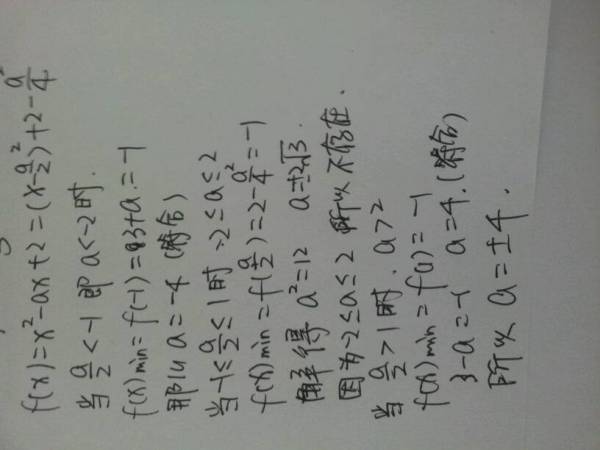 f(x)=x²-ax+2=(x-a/2)²+2-a²/4
当 a/2<-1 即 a<-2时.
f(x)min=f(-1)=3+a.=-1
那么a=-4 (符合)
当-1≤a/2≤1时 -2≤a≤2
f(x)min=f(a/2)=2-a²/4=-1
解得 a²=12 a=±2√3.
因为-2≤a≤2 所以不存在.
当 a/2>1时. a>2
f(x)min=f(1)=-1
3-a=-1 a=4.(符合)
所以 a=±4.